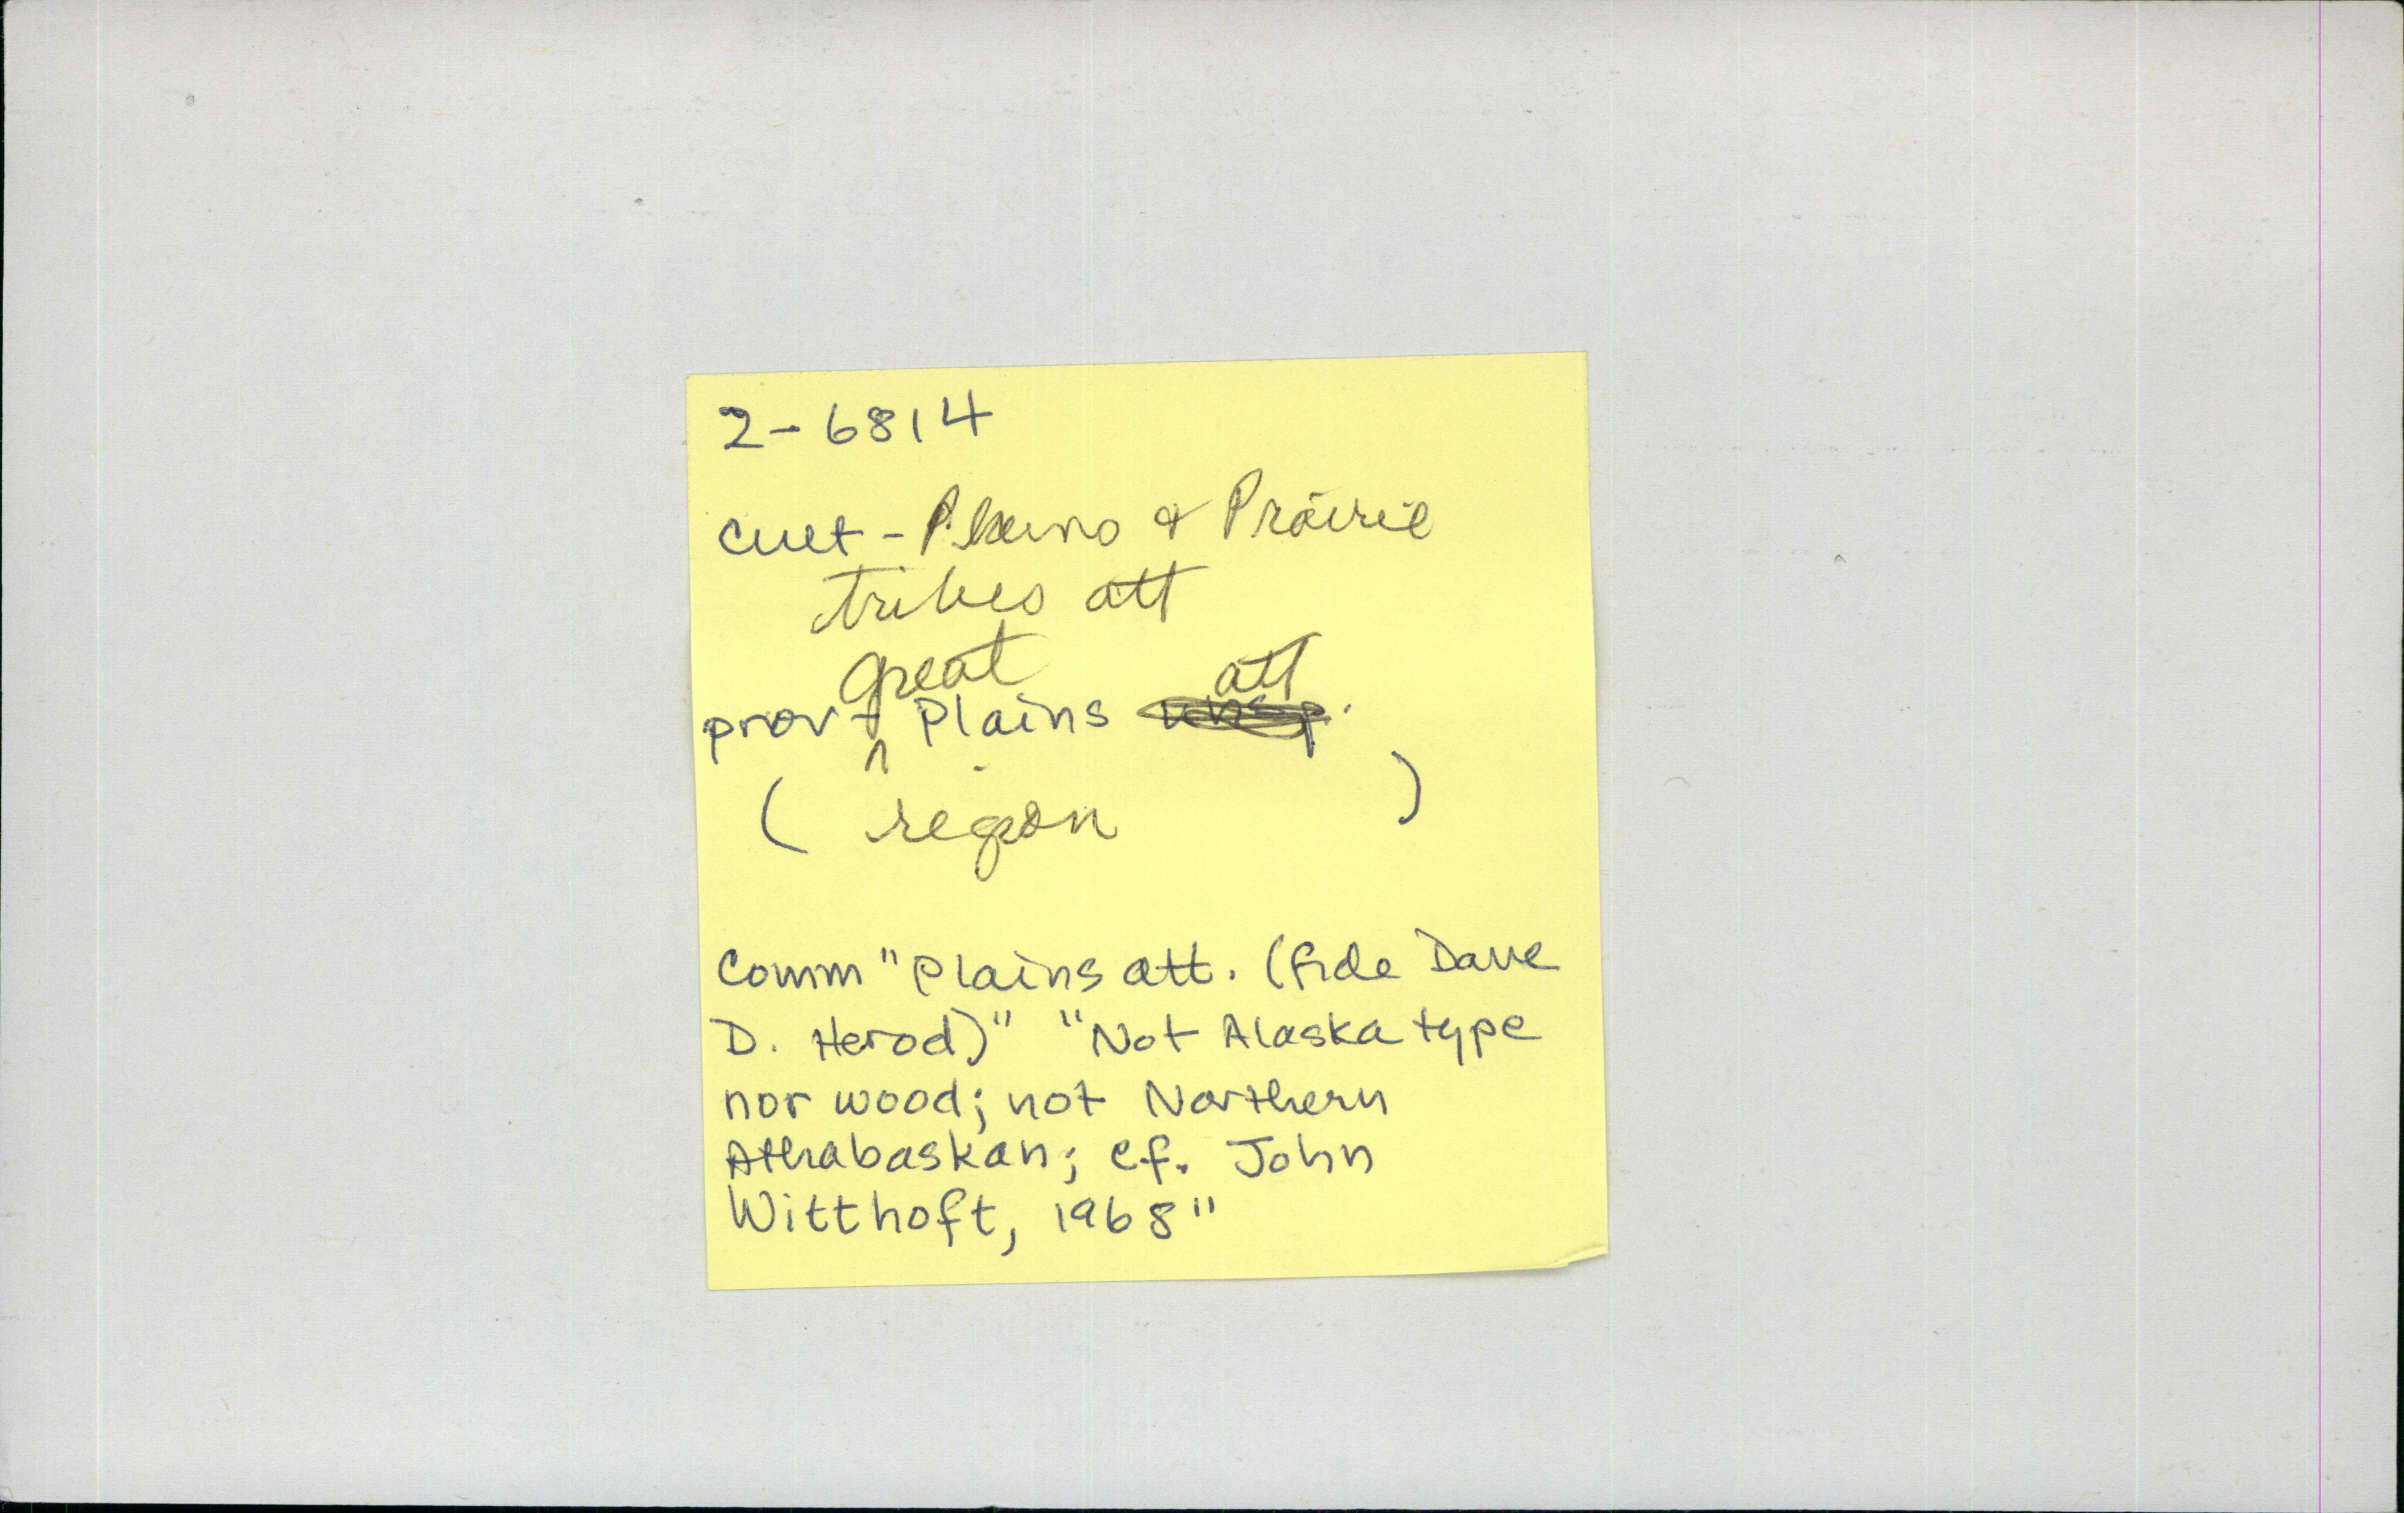 2-6814
cult - Plains & Prairie
tribes att
great att
prov - Plains unsp.
( region )
Comm "Plains att. (fide Dave
D. Herod)" "Not Alaska type
nor wood; not Northern
Athabaskan; cf. John
Witthoft, 1968"